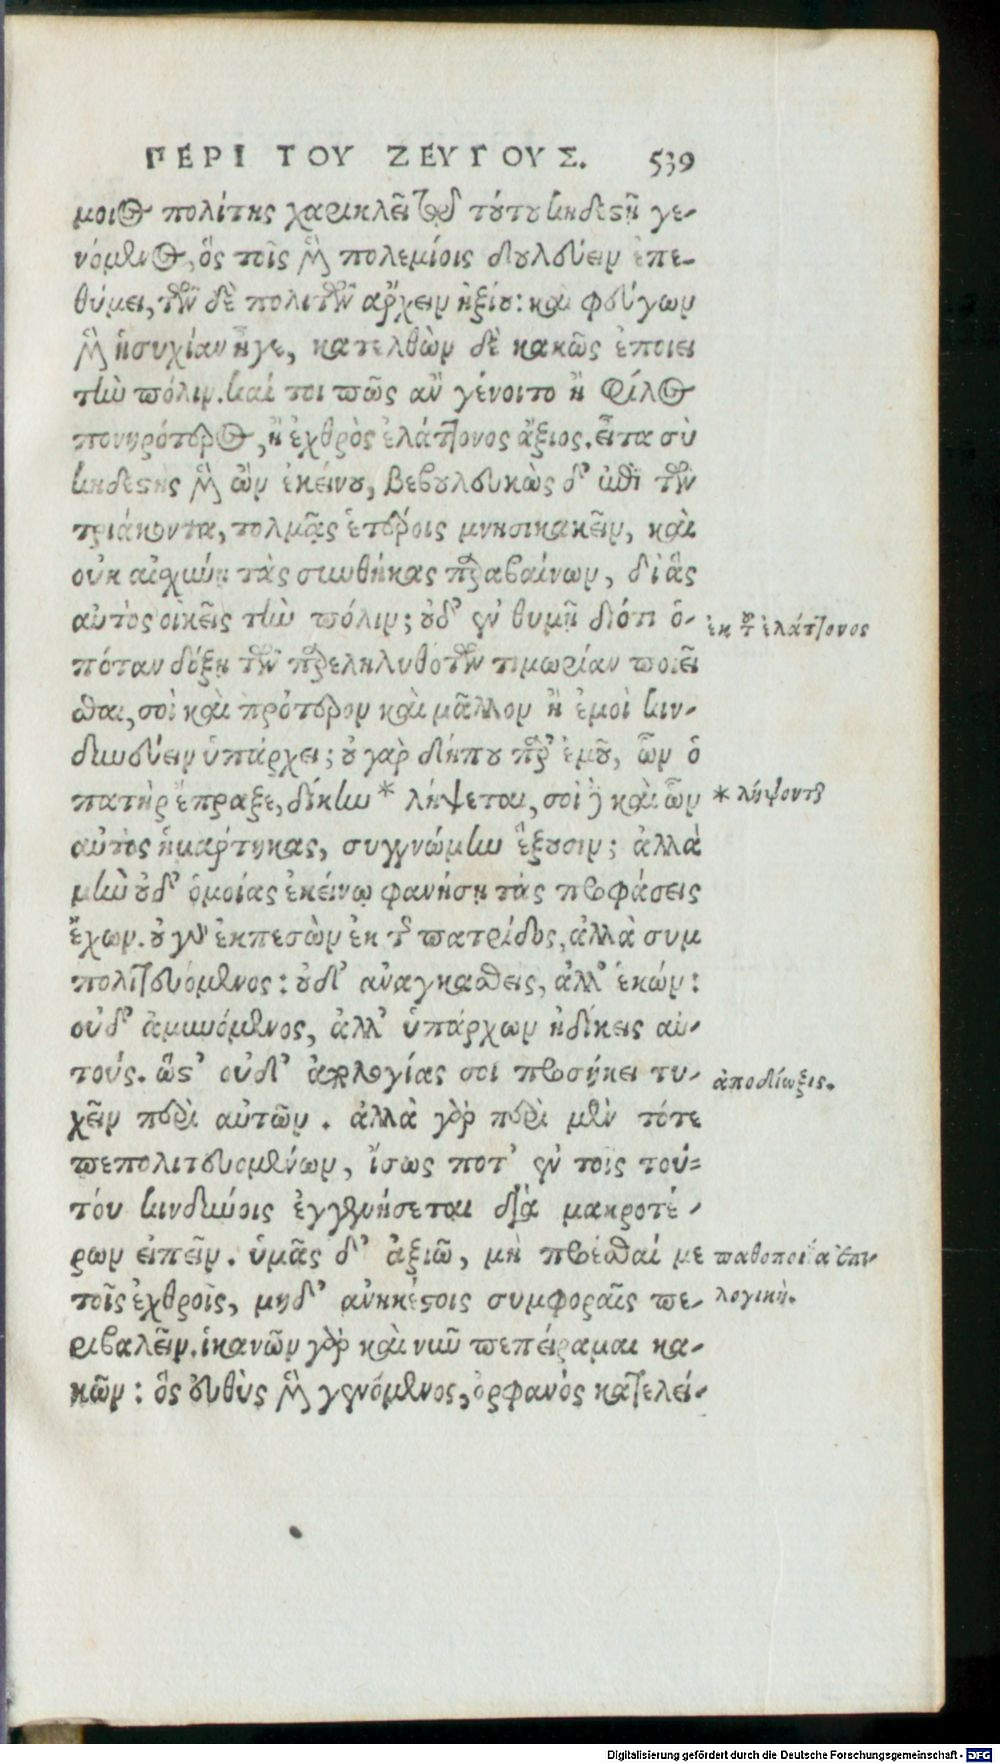 ΠΕΡΙ ΤΟΥ ΖΕΥΓΟΥΣ. 539
μοιος πολίτης χαρικλεῖ τῷ τούτου κηδεστῇ γε-
νόμενος, ὃς τοῖς μὲν πολεμίοις δουλεύειν ἐπε-
θύμει, τῶν δὲ πολιτῶν ἄρχειν ἠξίου: καὶ φεύγων
μὲν ἡσυχίαν ἦγε, κατελθὼν δὲ κακῶς ἐποιει
τὴν πόλιν. καί τοι πῶς ἂν γένοιτο ἢ φίλος
πονηρότερος, ἢ ἐχθρὸς ἐλάττονος ἄξιος. εἶτα σὺ
κηδεστὴς μὲν ὢν ἐκείνου, βεβουλευκὼς δ' ἐπὶ τῶν
τριάκοντα, τολμᾷς ἑτέροις μνησικακεῖν, καὶ
οὐκ αἰσχύνῃ τὰς συνθήκας παραβαίνων, δι ἃς
αὐτὸς οἰκεῖς τὴν πόλιν; οὐδ' ἐν θυμῇ διότι ὁ-
πόταν δόξῃ τῶν παρεληλυθότων τιμωρίαν ποιεῖ
σθαι, σοὶ καὶ πρότερον καὶ μᾶλλον ἢ ἐμοὶ κιν-
δυνεύειν ὑπάρχει; οὐ γὰρ δήπου παρ' ἐμοῦ, ὧν ὁ
πατὴρ ἔπραξε, δίκην * λήψεται, σοὶ δὲ καὶ ὧν
αὐτὸς ἡμάρτηκας, συγγνώμην ἕξουσιν; ἀλλὰ
μὴν οὐδ' ὁμοίας ἐκείνῳ φανήσῃ τὰς προφάσεις
ἔχων. οὐ γὰρ ἐκπεσὼν ἐκ τῆς πατρίδος, ἀλλὰ συμ
πολιτευόμενος: οὐδ' ἀναγκασθεὶς, ἀλλ' ἑκών:
οὐδ' ἀμυνόμενος, ἀλλ' ὑπάρχων ἠδίκεις αὐ-
τούς. ὥστ' οὐδ' ἀπολογίας σοι προσήκει τυ-
χεῖν παρὰ αὐτῶν. ἀλλὰ γὰρ περὶ μὲν τότε
πεπολιτευομένων, ἴσως ποτ' ἐν τοῖς τού-
του κινδύνοις ἐγγενήσεται διὰ μακροτέ-
ρων εἰπεῖν. ὑμᾶς δ' ἀξιῶ, μὴ προέσθαί με
τοῖς ἐχθροῖς, μηδ' ἀνηκέστοις συμφοραῖς πε-
ριβαλεῖν. ἱκανῶν γὰρ καὶ νῦν πεπείραμαι κα-
κῶν: ὃς εὐθὺς μὲν γενόμενος, ὀρφανὸς κατελεί-
ἐκ τοῦ ἐλάττονος
* λήψονται
ἀποδίωξις.
παθοποιΐα ἐπι-
λογική.
Digitalisierung gefördert durch die Deutsche Forschungsgemeinschaft - DFG